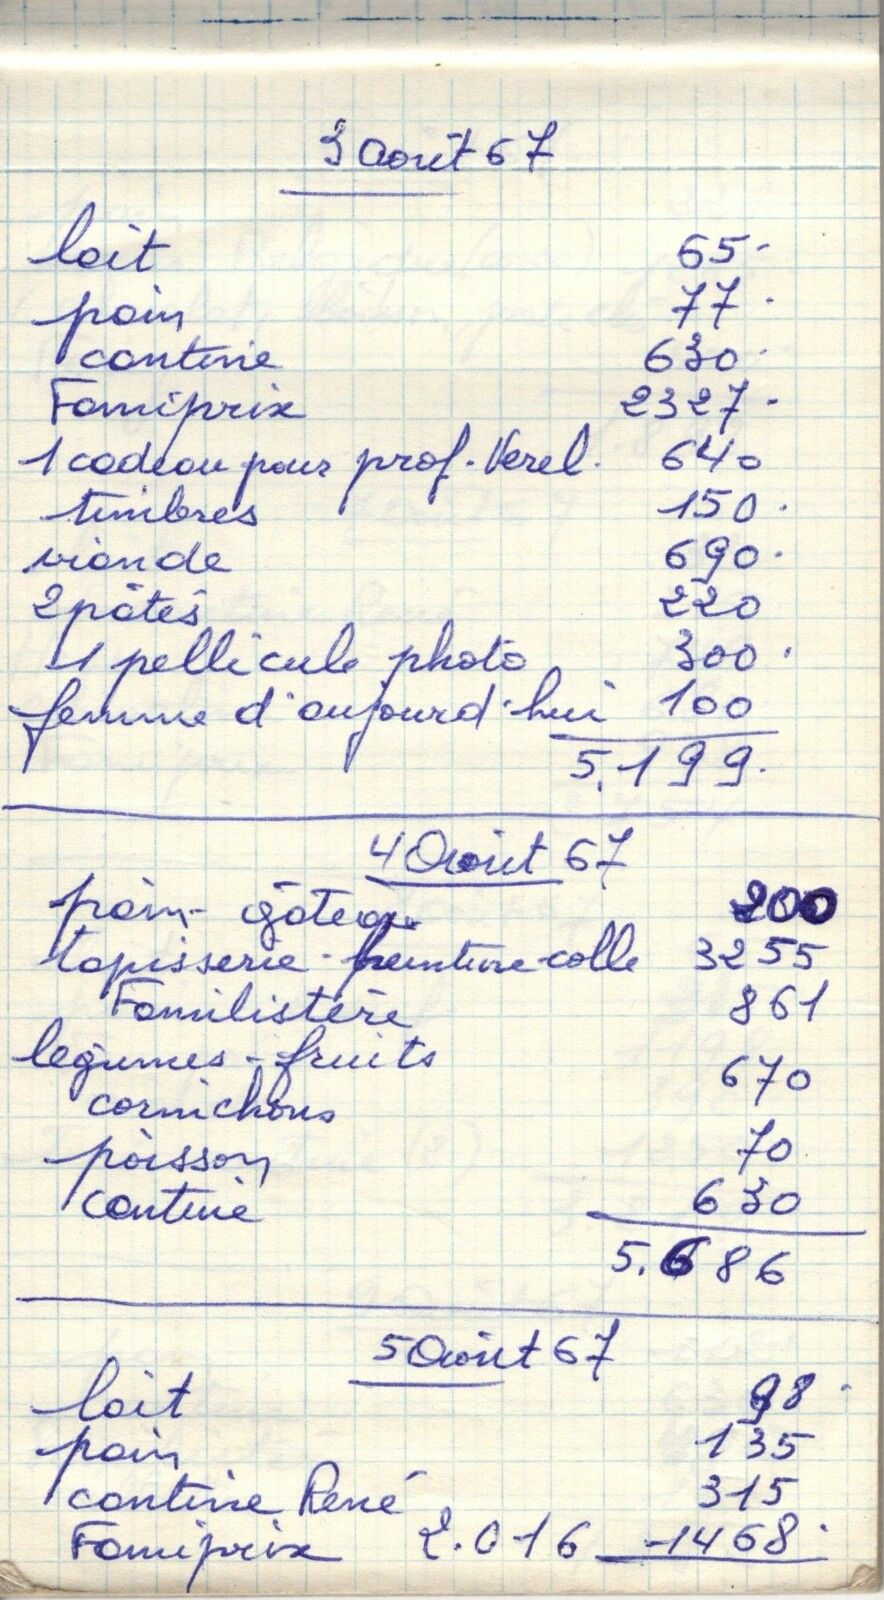 3 Août 67
lait 65.
pain 77.
cantine 630.
Famiprix 2327.
1 cadeau pour prof. Verel. 640
timbres 150.
viande 690.
2 pâtés 220
1 pellicule photo 300.
femme d'aujourd'hui 100
5.199.
4 Août 67
pain - gâteau 200
tapisserie - peinture - colle 3255
Familistère 861
légumes - fruits
cornichons 670
poisson 70
cantine 630
5.686
5 Août 67
lait 98.
pain 135
cantine René 315
Famiprix 2.016 1468.